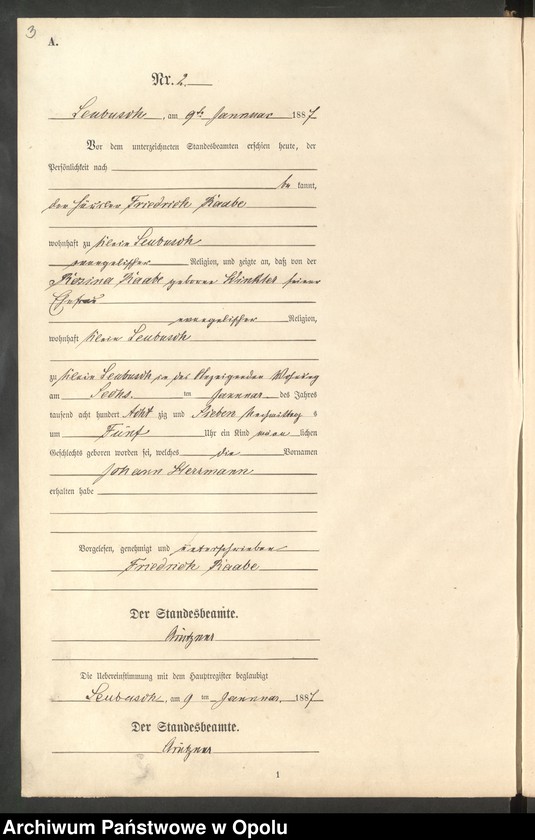 3
A.
Nr. 2.
Leubusch, am 9ten Januar 1887
Vor dem unterzeichneten Standesbeamten erschien heute, der
Persönlichkeit nach
be kannt,
der Häusler Friedrich Raabe
wohnhaft zu Klein Leubusch
evangelischer Religion, und zeigte an, daß von der
Rozina Raabe geborene Winkler seiner
Ehefrau
evangelischer Religion,
wohnhaft Klein Leubusch
zu Klein Leubusch in des Anzeigenden Wohnung
am Sechs ten Januar des Jahres
tausend acht hundert Acht zig und Sieben Nachmittag s
um Fünf Uhr ein Kind männ lichen
Geschlechts geboren worden sei, welches die Vornamen
Johann Herrmann
erhalten habe
Vorgelesen, genehmigt und unterschrieben
Friedrich Raabe
Der Standesbeamte.
Die Uebereinstimmung mit dem Hauptregister beglaubigt
Leubusch, am 9 ten Januar. 1887
Der Standesbeamte.
1
Archiwum Państwowe w Opolu